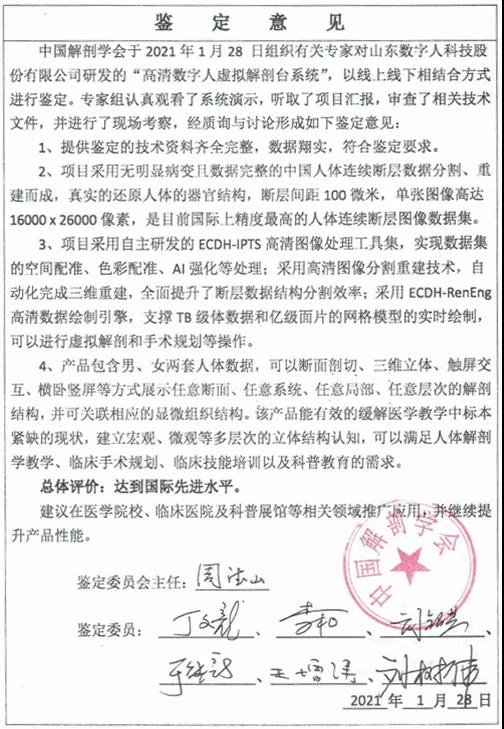 鉴 定 意 见
中国解剖学会于 2021 年 1 月 28 日组织有关专家对山东数字人科技股
份有限公司研发的“高清数字人虚拟解剖台系统”，以线上线下相结合方式
进行鉴定。专家组认真观看了系统演示，听取了项目汇报，审查了相关技术
文件，并进行了现场考察，经质询与讨论形成如下鉴定意见：
1、提供鉴定的技术资料齐全完整，数据翔实，符合鉴定要求。
2、项目采用无明显病变且数据完整的中国人体连续断层数据分割、重
建而成，真实的还原人体的器官结构，断层间距 100 微米，单张图像高达
16000 x 26000 像素，是目前国际上精度最高的人体连续断层图像数据集。
3、项目采用自主研发的 ECDH-IPTS 高清图像处理工具集，实现数据集
的空间配准、色彩配准、AI 强化等处理；采用高清图像分割重建技术，自
动化完成三维重建，全面提升了断层数据结构分割效率；采用 ECDH-RenEng
高清数据绘制引擎，支撑 TB 级体数据和亿级面片的网格模型的实时绘制，
可以进行虚拟解剖和手术规划等操作。
4、产品包含男、女两套人体数据，可以断面剖切、三维立体、触屏交
互、横卧竖屏等方式展示任意断面、任意系统、任意局部、任意层次的解剖
结构，并可关联相应的显微组织结构。该产品能有效的缓解医学教学中标本
紧缺的现状，建立宏观、微观等多层次的立体结构认知，可以满足人体解剖
学教学、临床手术规划、临床技能培训以及科普教育的需求。
总体评价：达到国际先进水平。
建议在医学院校、临床医院及科普展馆等相关领域推广应用，并继续提
升产品性能。
中国解剖学会
鉴定委员会主任：
鉴定委员：
2021 年 1 月 28 日